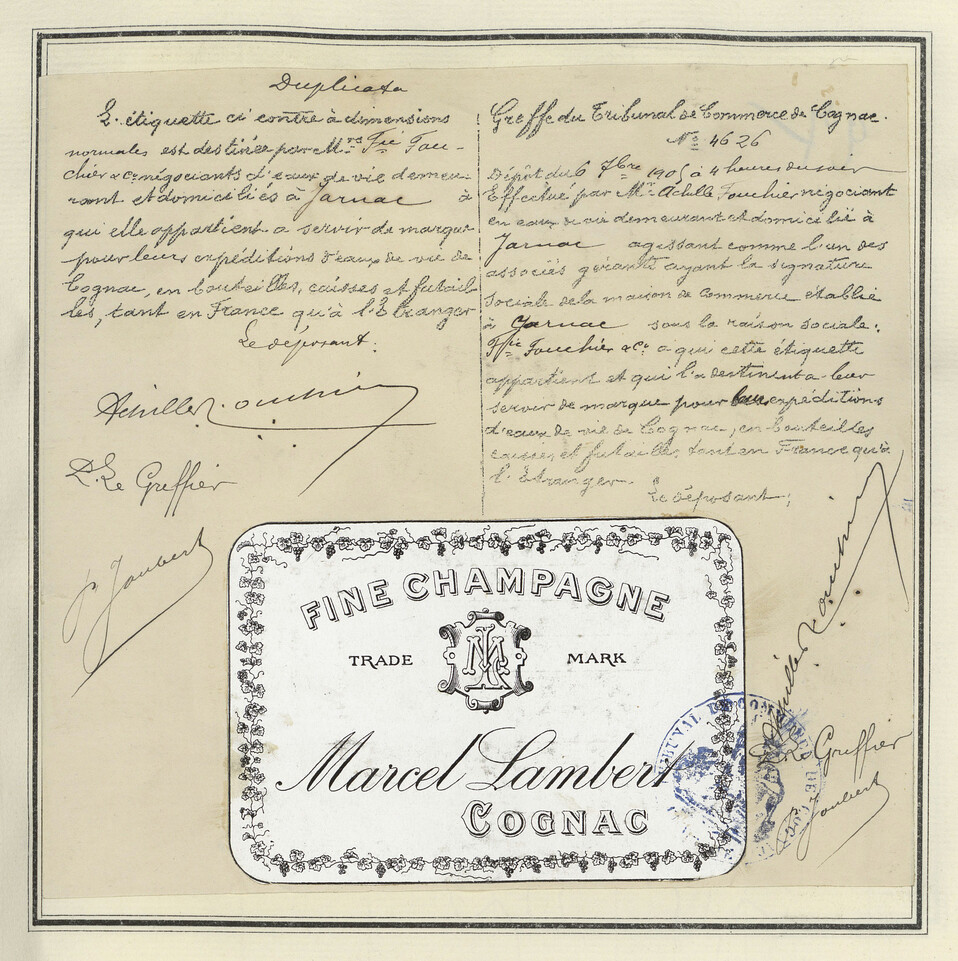 Duplicata
L'étiquette ci contre à dimensions
normales est destinée par Mrs Fçis Fou-
chier & Cie négociants d'eaux de vie demeu-
rant et domiciliés à Jarnac à
qui elle appartient a servir de marque
pour leurs expéditions d'eaux de vie de
Cognac, en bouteilles, caisses et futail-
les, tant en France qu'à l'Etranger
Le déposant:
Achille Fouchier
Le Greffier
P. Joubert
Greffe du Tribunal de Commerce de Cognac.
No 4626
Dépôt du 6 7bre 1905 à 4 heures du soir
Effectué par Mr Achille Fouchier négociant
en eaux de vie demeurant et domicilié à
Jarnac agissant comme l'un des
associés gérants ayant la signature
sociale de la maison de commerce établie
à Jarnac sous la raison sociale:
Fçis Fouchier & Cie à qui cette étiquette
appartient et qui l'a destinent a leur
servir de marque pour leurs expéditions
d'eaux de vie de Cognac, en bouteilles
caisses et futailles tant en France qu'à
l'étranger.
Le déposant;
Achille Fouchier
Le Greffier
Joubert
FINE CHAMPAGNE
TRADE MARK
Marcel Lambert
COGNAC
TRIBUNAL DE COMMERCE DE